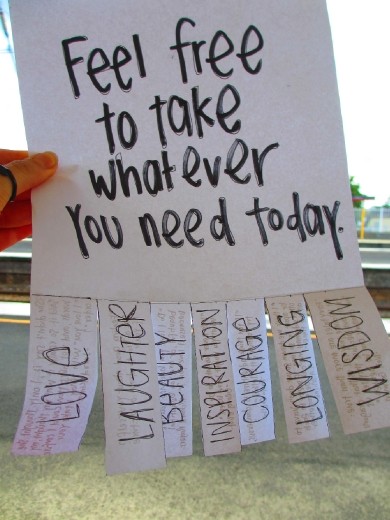 Feel free
to take
whatever
you need today.
LOVE
LAUGHTER
BEAUTY
INSPIRATION
COURAGE
LONGING
WISDOM